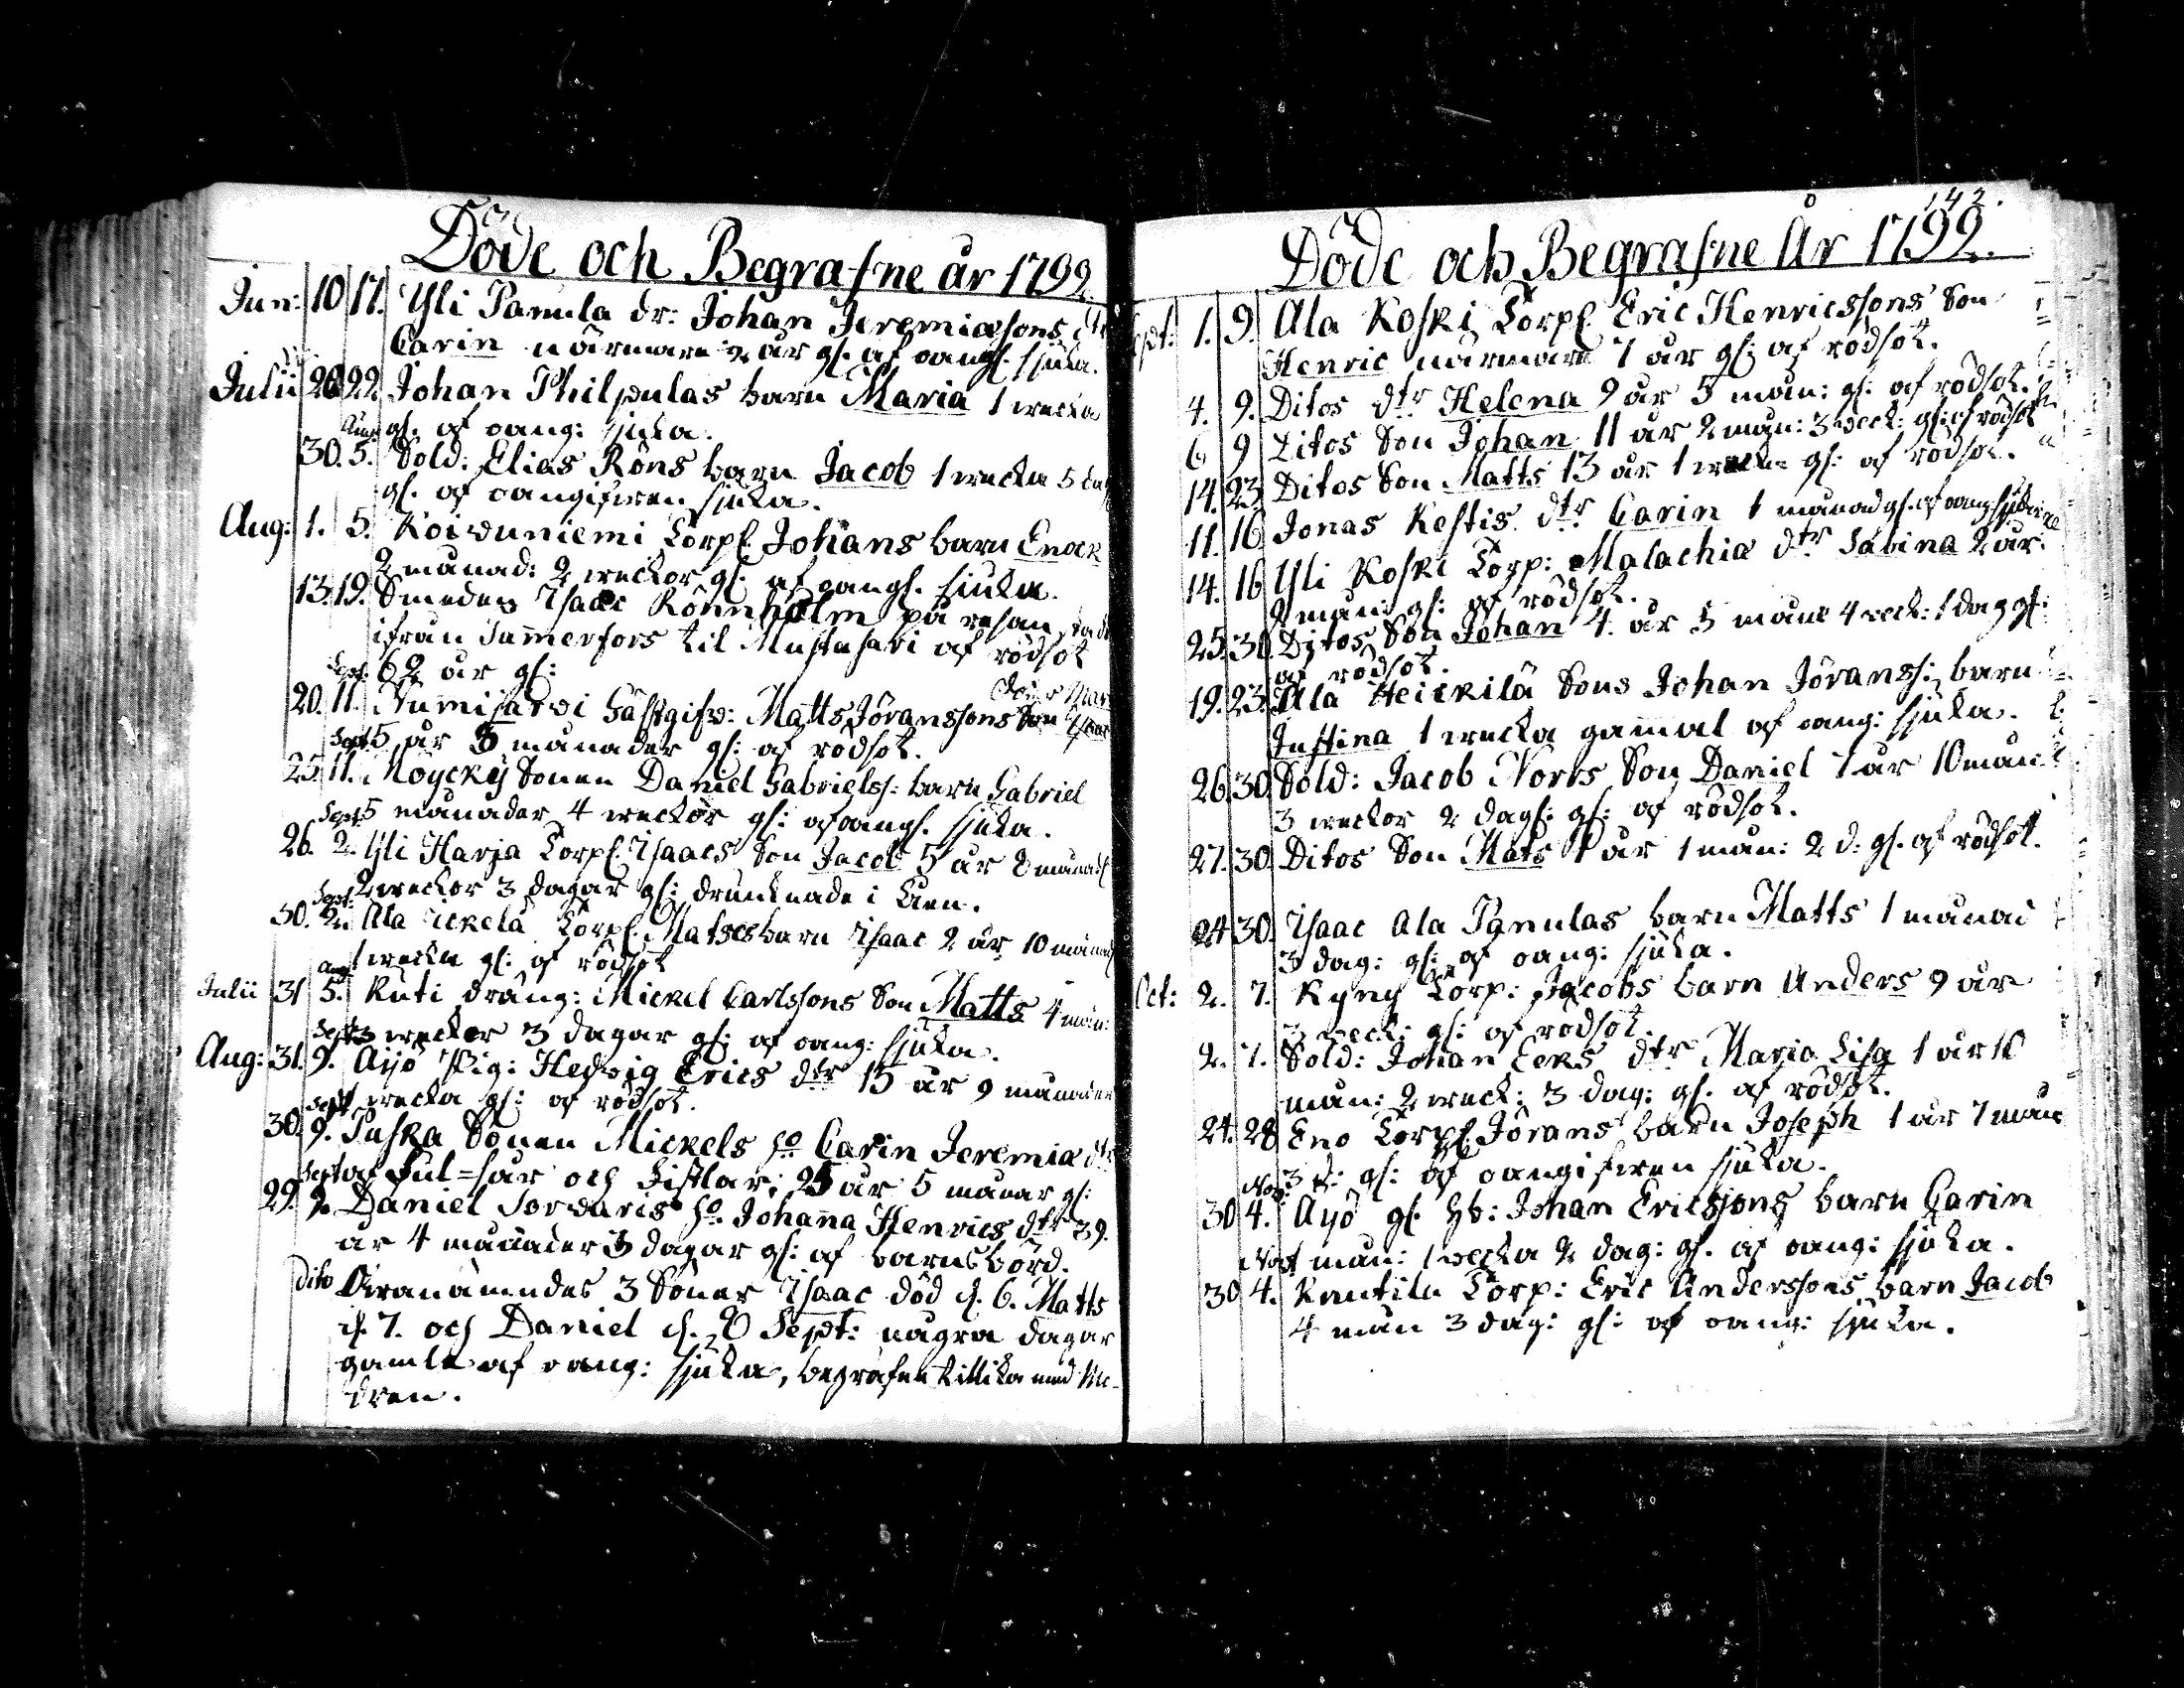 Döde och Begrafne år 1792
Jun: 10 17. Yli Panula dr: Johan Jeremiæsons dtr
Carin närmare 2 år gl. af oangl. sjuka.
Julii 20 22 Johan Philpulas barn Maria 1 wecka
gl. af oang: sjuka.
Aug:
30. 5. Sold: Elias Röns barn Jacob 1 wecka 5 dag
gl. af oangifwen sjuka.
Aug: 1. 5. Koivuniemi Torpl. Johans barn Enock
2 månad: 2 weckor gl. af oangl. sjuka.
13. 19. Smeden Isaac Rönnholm på resan
ifrån Tam̄erfors til Mustasari af rödsot
62 år gl:
Sept:
20. 11. Num̄ijärvi Gästgifw: Matts Jöranssons Son Isaac
5 år 3 månader gl: af rödsot.
Sept
25 11. Möycky Sonen Daniel Gabrielss: barn Gabriel
5 månader 4 weckor gl: af oangl. sjuka.
Sept:
26. 2. Yli Harja Torpl. Isaacs Son Jacob 5 år 8 månad
2 weckor 3 dagar gl: drunknade i Åen.
Sept.
30. 2. Ala Ickelä Torpl. Matses barn Isaac 2 år 10 månad
1 wecka gl: af rödsot
Aug:
Julii 31 5. Kuti dräng: Mickel Carlssons Son Matts 4 mån:
3 weckor 3 dagar gl: af oang: sjuka.
Sept
Aug: 31. 9. Äijö Pig: Hedvig Erics dtr 15 år 9 månader
1 wecka gl: af rödsot.
Sept
30. 9. Puska Sonen Mickels ho Carin Jeremiæ dtr
af Ful=sår och Fistlar; 25 år 5 månar gl:
Sept
29. 9. Daniel Sorvaris ho. Johan̄a Henrics dtr 39.
år 4 månader 3 dagar gl: af barnsbörd.
dito Ofvanämndes 3 Söner Isaac död d. 6. Matts
d. 7. och Daniel d. 8 Sept: några dagar
gamle af oang: sjuka, begrafen tillika med Mo-
dren.
142.
Döde och Begrafne År 1792.
Sept: 1. 9. Ala Koski Torpl. Eric Henricssons Son
Henric närmare 7 år gl: af rödsot.
4. 9. Ditos dtr Helena 9 år 5 mån: gl: af rödsot.
6 9 Ditos Son Johan 11 år 2 mån: 3 weck: gl: af rödsot
14. 23. Ditos Son Matts 13 år 1 wecka gl: af rödsot.
11. 16 Jonas Kestis dtr Carin 1 månad gl. af oang sjuka
14. 16 Yli Koski Torp: Malachiæ dtr Sabina 2 år
2 mån: gl: af rödsot.
25. 30. Ditos Son Johan 4 år 5 mån 4 weck: 1 dag gl:
af rödsot.
19. 23. Ala Heickilä Sons Johan Jöranss: barn
Justina 1 wecka gam̄al af oang: sjuka.
26. 30. Sold: Jacob Norrs Son Daniel 7 år 10 mån:
3 weckor 2 dagl: gl: af rödsot.
27. 30. Ditos Son Mats 1 år 1 mån: 2 d: gl. af rödsot.
24 30. Isaac Ala Panulas barn Matts 1 månad
3 dag: gl: af oang: sjuka.
Oct: 2. 7. Kyny Torp: Jacobs barn Anders 9 år
3 weck: gl: af rödsot.
2. 7. Sold: Johan Eeks dtr Maria Lisa 1 år 10
mån: 2 weck: 3 dag: gl. af rödsot.
24. 28 Eno Torpl. Jörans barn Joseph 1 år 7 mån
3 d: gl: af oangifwen sjuka.
Nov:
30 4. Äijö gl. hb: Johan Ericssons barn Carin
mån: 1 wecka 2 dag: gl. af oang: sjuka.
Nov
30 4. Knutila Torp: Eric Anderssons barn Jacob
4 mån 3 dag: gl: af oang: sjuka.